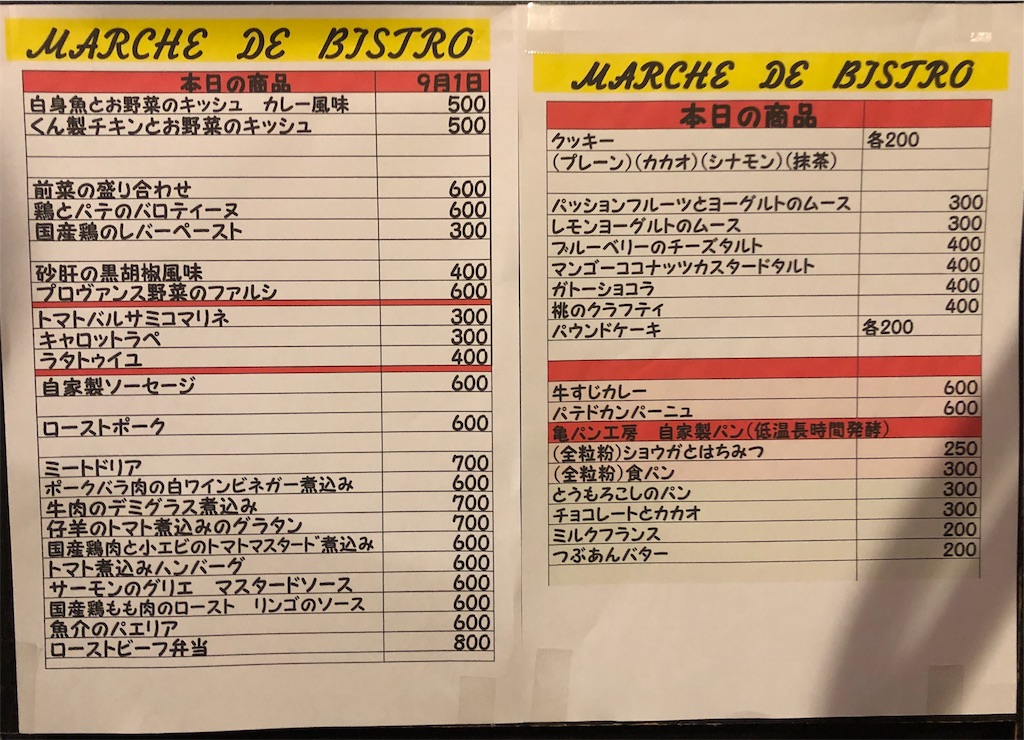 MARCHE DE BISTRO
本日の商品 9月1日
白身魚とお野菜のキッシュ カレー風味 500
くん製チキンとお野菜のキッシュ 500
前菜の盛り合わせ 600
鶏とパテのバロティーヌ 600
国産鶏のレバーペースト 300
砂肝の黒胡椒風味 400
プロヴァンス野菜のファルシ 600
トマトバルサミコマリネ 300
キャロットラペ 300
ラタトゥイユ 400
自家製ソーセージ 600
ローストポーク 600
ミートドリア 700
ポークバラ肉の白ワインビネガー煮込み 600
牛肉のデミグラス煮込み 700
仔羊のトマト煮込みのグラタン 700
国産鶏肉と小エビのトマトマスタード煮込み 600
トマト煮込みハンバーグ 600
サーモンのグリエ マスタードソース 600
国産鶏もも肉のロースト リンゴのソース 600
魚介のパエリア 600
ローストビーフ弁当 800
MARCHE DE BISTRO
本日の商品
クッキー 各200
(プレーン)(カカオ)(シナモン)(抹茶)
パッションフルーツとヨーグルトのムース 300
レモンヨーグルトのムース 300
ブルーベリーのチーズタルト 400
マンゴーココナッツカスタードタルト 400
ガトーショコラ 400
桃のクラフティ 400
パウンドケーキ 各200
牛すじカレー 600
パテドカンパーニュ 600
亀パン工房 自家製パン(低温長時間発酵)
(全粒粉)ショウガとはちみつ 250
(全粒粉)食パン 300
とうもろこしのパン 300
チョコレートとカカオ 300
ミルクフランス 200
つぶあんバター 200